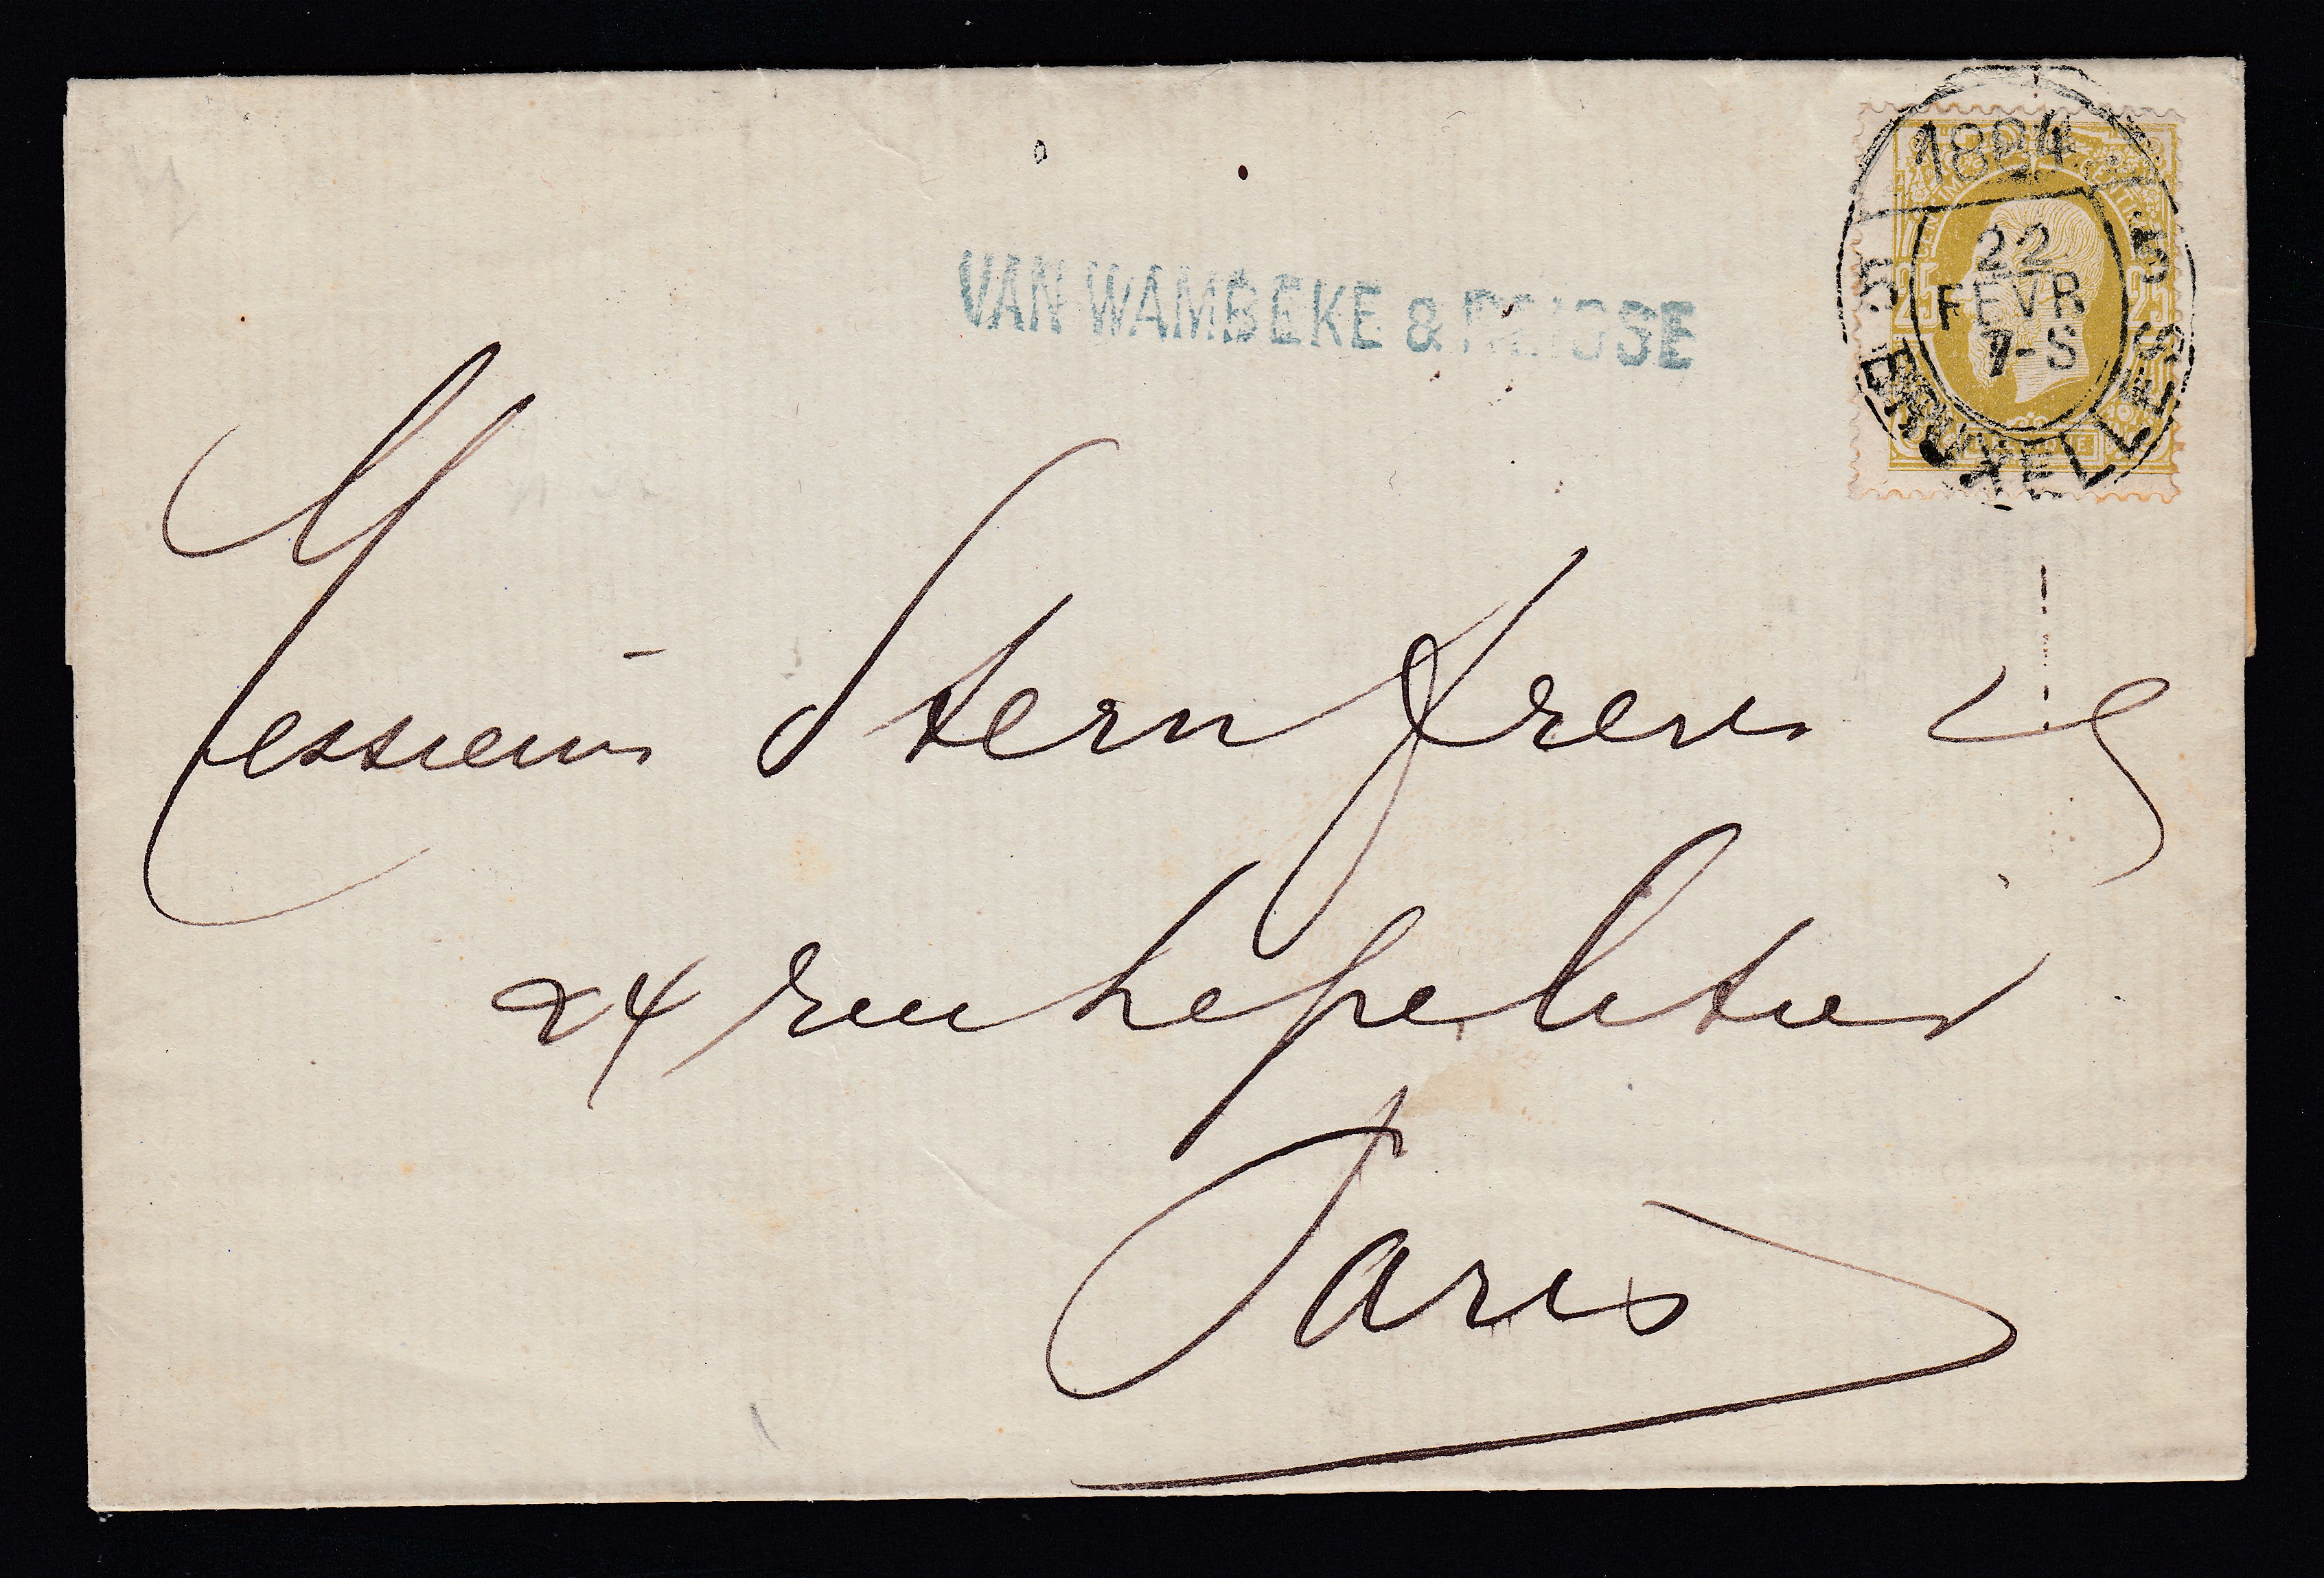 1884
5 5
22
FEVR
7-S
BRUXELLES
25 25
VAN WAMBEKE &
Messieurs Stern freres
24 rue Lepeletier
Paris